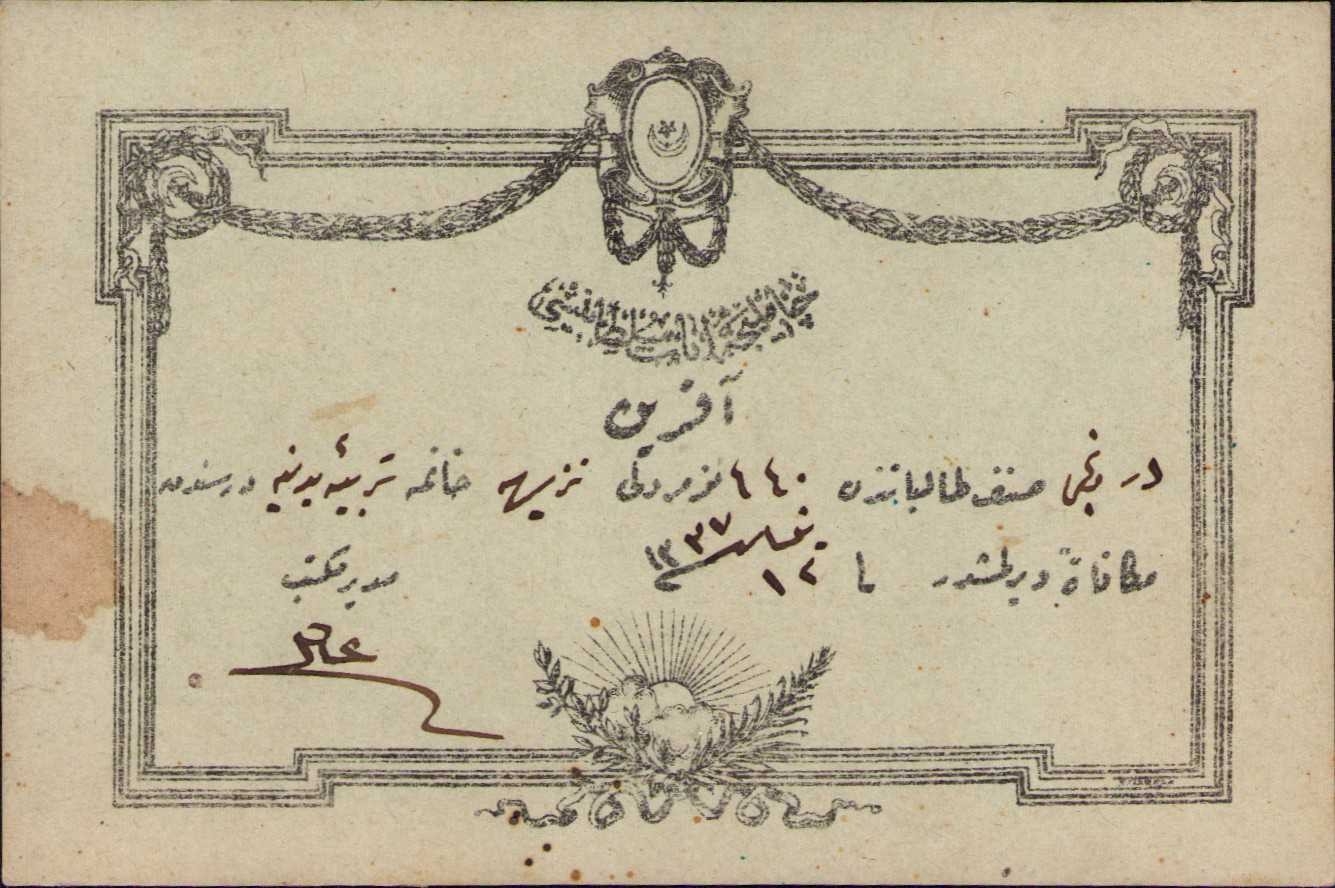 چامليجه اناث سلطانيسى
آفرين
درنجى صنف طالباتندن ٤٤٠ نومرولى نزيهه خانمه تربيۀ بدنيه درسندن
مكافاةً ويرلمشدر ١٢ نيسان ١٣٣٧
مدير مكتب